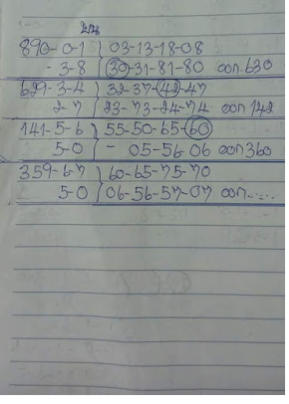 บน
890-0-1 } 03-13-18-08
-3-8 } 30-31-81-80 ออก 630
629-3-4 } 32-37-42-47
2-7 } 23-73-24-74 ออก 142
141-5-6 } 55-50-65-60
5-0 } - 05-56 06 ออก 360
359-6-7 } 60-65-75-70
5-0 } 06-56-57-07 ออก.....